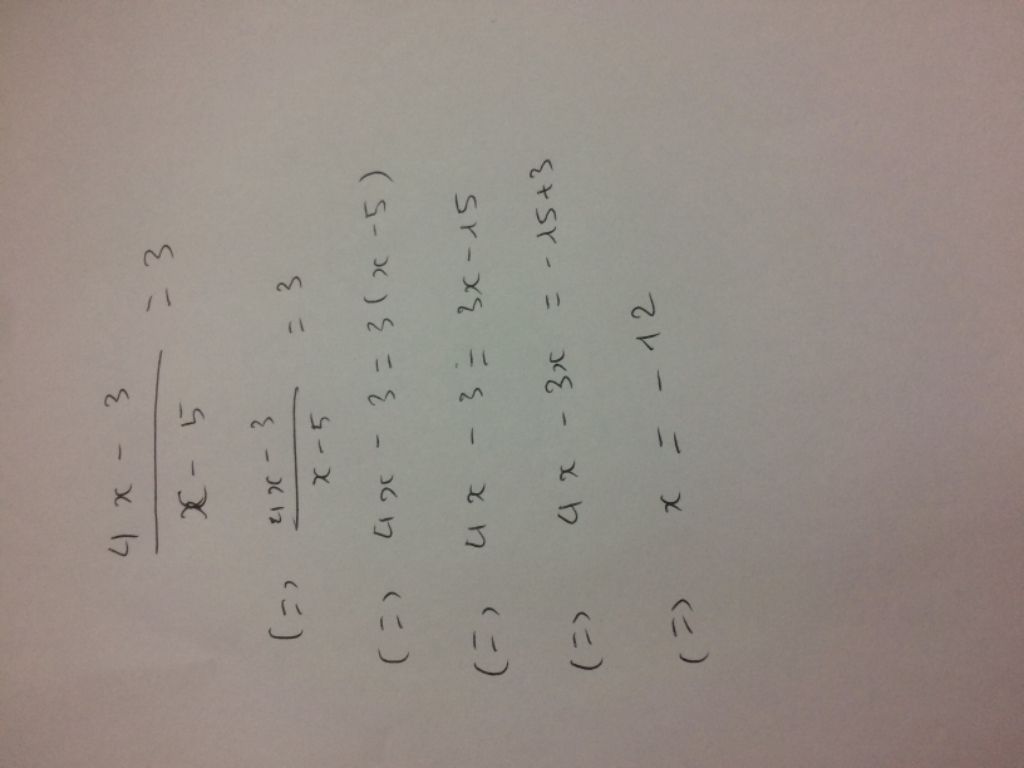 4x - 3
x - 5
= 3
(=) 4x - 3
x - 5
= 3
(=) 4x - 3 = 3(x - 5)
(=) 4x - 3 = 3x - 15
(=) 4x - 3x = -15 + 3
(=) x = - 12